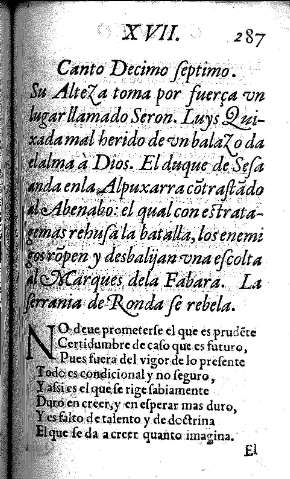 XVII. 287
Canto Decimo septimo.
Su Alteza toma por fuerça vn
lugar llamado Seron. Luys Qui-
xada mal herido de vn balazo da
el alma à Dios. El duque de Sesa
anda en la Alpuxarra cõtrastãdo
al Abenabo: el qual con estrata-
gemas rehusa la batalla, los enemi
gos rõpen y desbalijan vna escolta
al Marques de la Fabara. La
serrania de Ronda se rebela.
NO deue prometerse el que es prudẽte
Certidumbre de caso que es futuro,
Pues fuera del vigor de lo presente
Todo es condicional y no seguro,
Y assi es el que se rige sabiamente
Duro en creer, y en esperar mas duro,
Y es falto de talento y de doctrina
El que se da a creer quanto imagina.
El